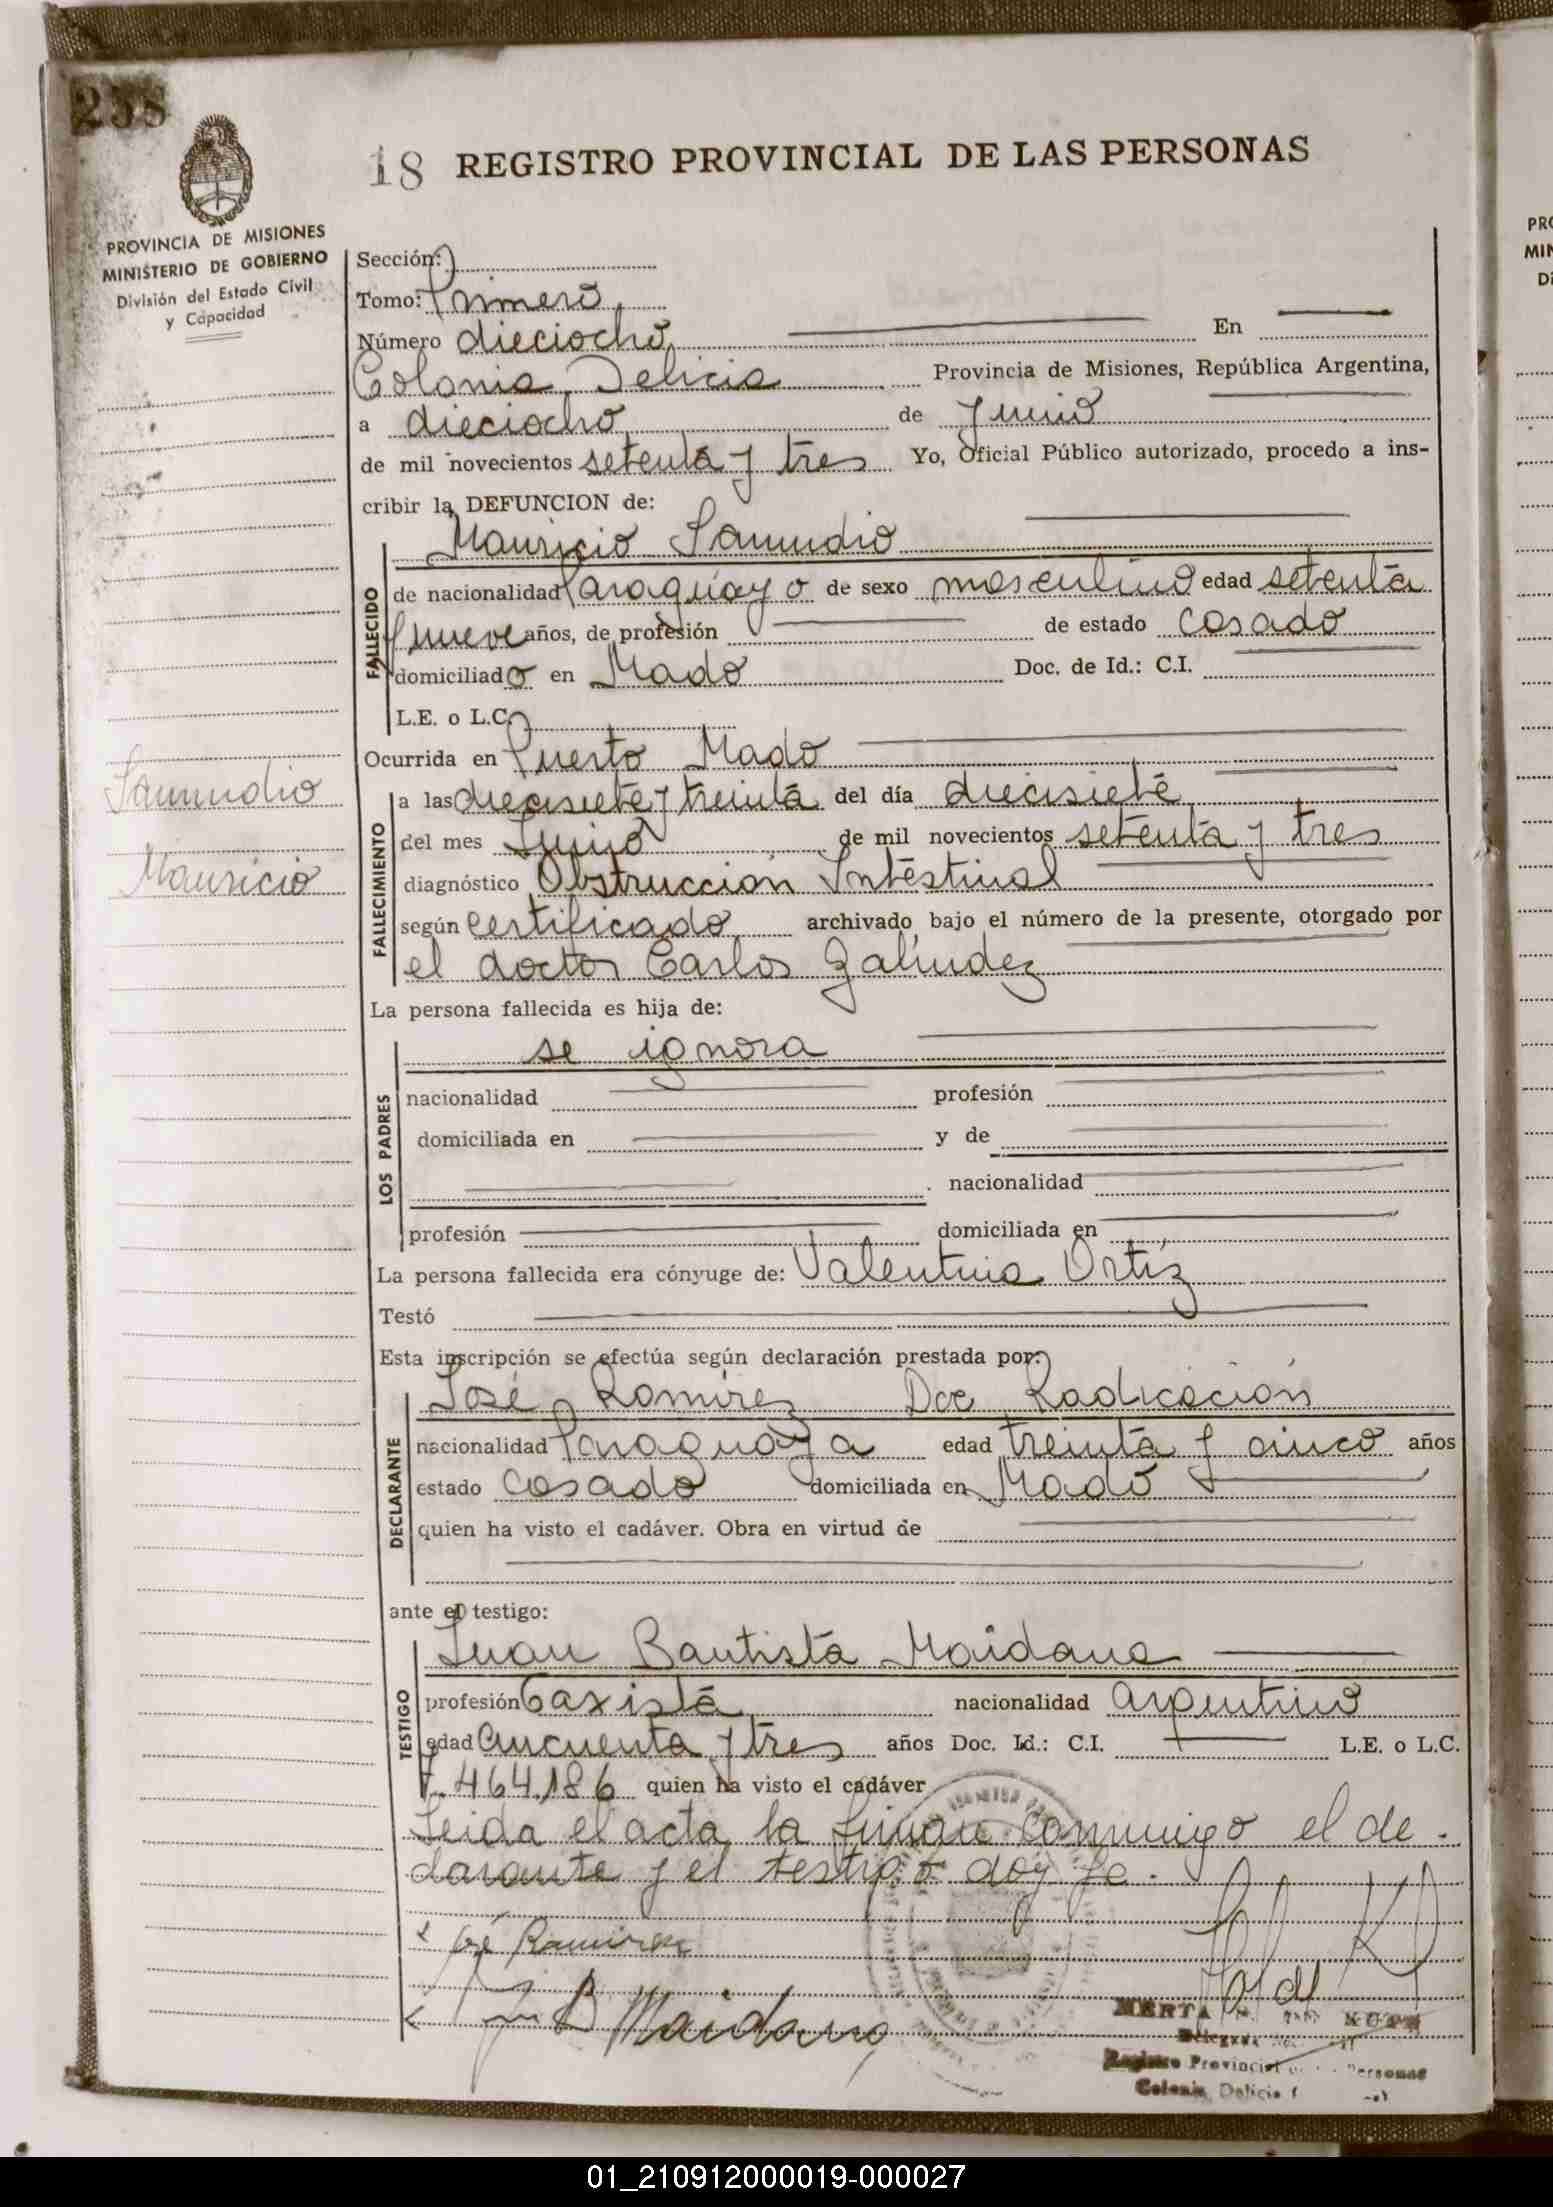 258
18 REGISTRO PROVINCIAL DE LAS PERSONAS
PROVINCIA DE MISIONES
MINISTERIO DE GOBIERNO
División del Estado Civil
y Capacidad
Sección:
Tomo: Primero
Número dieciocho En
Colonia Delicia Provincia de Misiones, República Argentina,
a dieciocho de Junio
de mil novecientos setenta y tres Yo, Oficial Público autorizado, procedo a ins-
cribir la DEFUNCION de:
Mauricio Samudio
FALLECIDO
de nacionalidad Paraguayo de sexo masculino edad setenta
y nueve años, de profesión de estado casado
domiciliado en Mado Doc. de Id.: C.I.
L.E. o L.C.
Ocurrida en Puerto Mado
Samudio
Mauricio
FALLECIMIENTO
a las diecisiete y treinta del día diecisiete
del mes Junio de mil novecientos setenta y tres
diagnóstico Obstrucción Intestinal
según certificado archivado bajo el número de la presente, otorgado por
el doctor Carlos Galindez
La persona fallecida es hija de:
LOS PADRES
se ignora
nacionalidad profesión
domiciliada en y de
nacionalidad
profesión domiciliada en
La persona fallecida era cónyuge de: Valentina Ortíz
Testó
Esta inscripción se efectúa según declaración prestada por:
DECLARANTE
José Ramírez Doc Radicación
nacionalidad Paraguaya edad treinta y cinco años
estado casado domiciliada en Mado
quien ha visto el cadáver. Obra en virtud de
ante el testigo:
TESTIGO
Juan Bautista Maidana
profesión Taxista nacionalidad argentino
edad cincuenta y tres años Doc. Id.: C.I. L.E. o L.C.
7.464.186 quien ha visto el cadáver
Leida el acta, la firman conmigo el de-
clarante y el testigo doy fe.
José Ramirez
J B Maidana
MERTA
Registro Provincial Personas
Colonia Delicia
PRO
MIN
Di
01_210912000019-000027